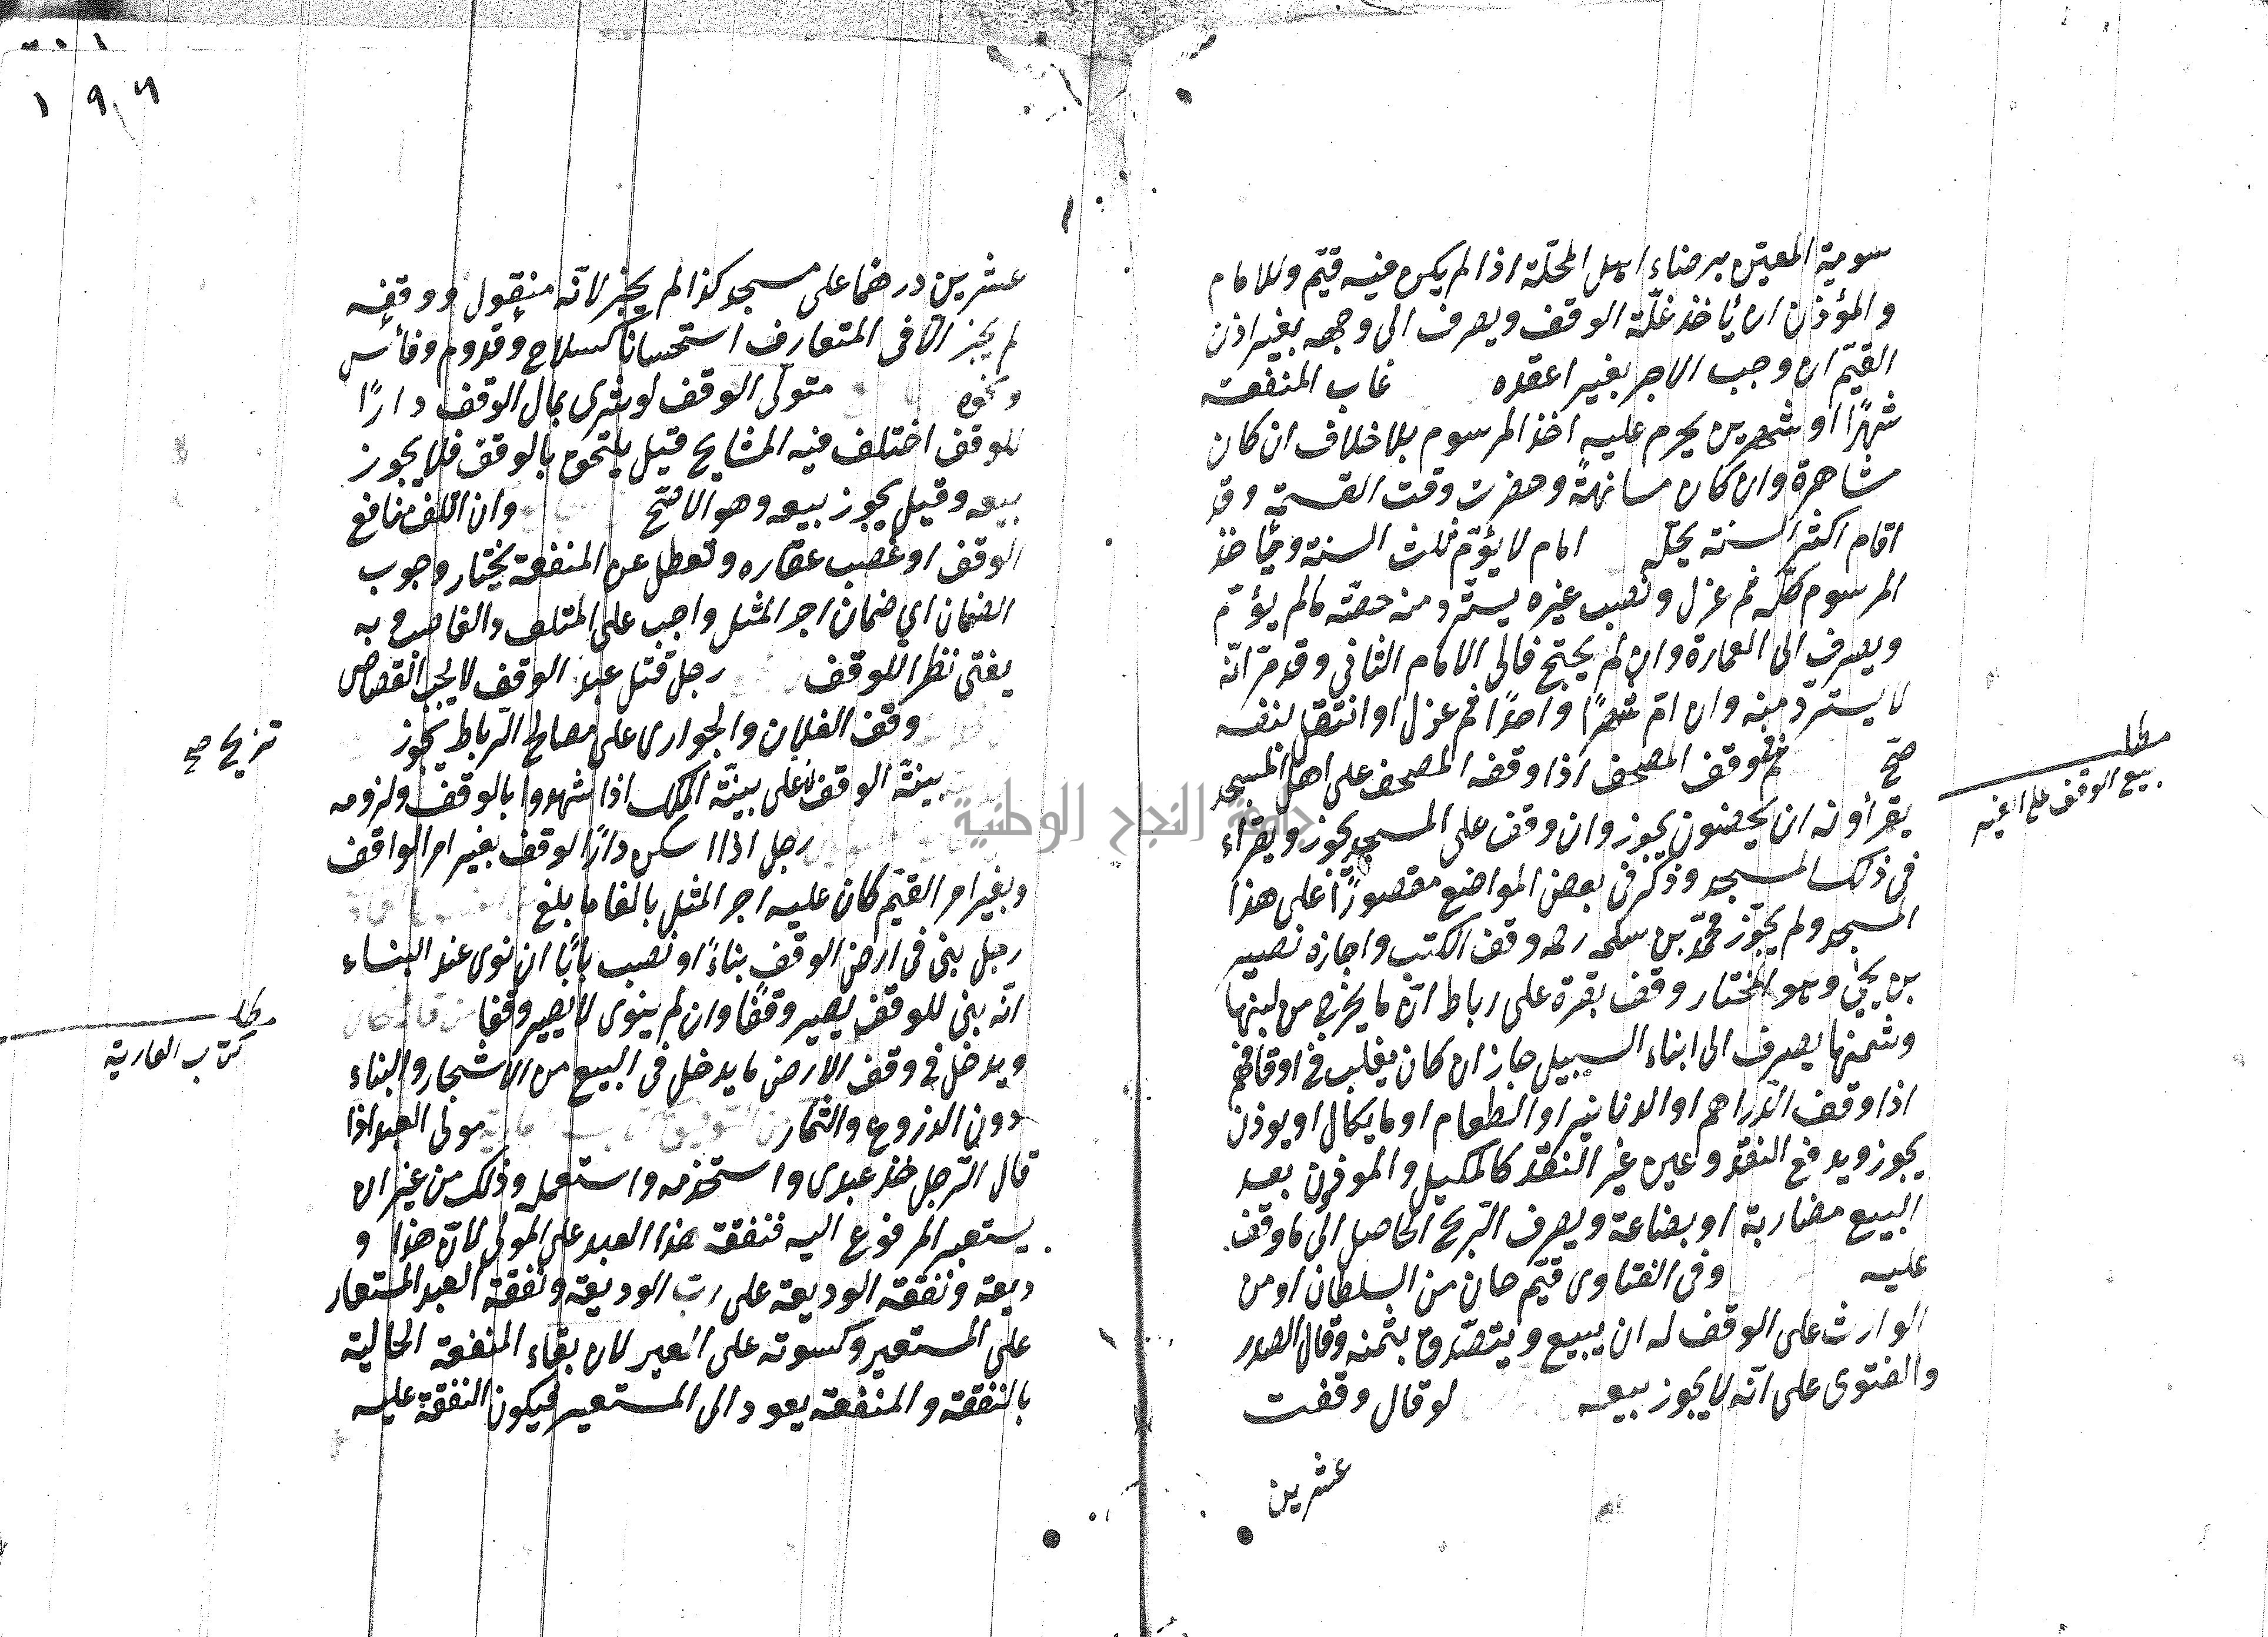 سومية المعين برضاء اهل المحلّة اذا لم يكن فيه قيّم وللامام
والمؤذن ان يأخذ غلّة الوقف ويصرف الى وجهه بغير اذن
القيّم ان وجب الاجر بغير اعقده غاب المنفعة
شهرًا او شهرين يحرم عليه اخذ المرسوم بلا خلاف ان كان
مشاهرة وان كان مسانهةً وحضرت وقت القسمة وقد
اقام اكثر السنة يحلّ امام لا يؤمّ ثلث السنة ويأخذ
المرسوم كلّه ثم عزل ونصب غيره يستردّ منه حصّته ما لم يؤمّ
ويصرف الى العمارة وان لم يحتج فالى الامام الثانى وقد مرّ انّه
لا يستردّ منه وان امّ شهرًا واحدًا ثم عزل او انتقل لنفسه
صحّ ثم وقف المصحف اذا وقفه المصحف على اهل المسجد
يقرأونه ان يحصون يجوز وان وقف على المسجد يجوز ويقراء
فى ذلك المسجد وذكر فى بعض المواضع مقصورًا على هذا
المسجد ولم يجوّز محمّد بن سلمه رحمه وقف الكتب واجازه نصير
بن يحيى وهو المختار وقف بقرة على رباط انّ ما يخرج من لبنها
وسمنها يصرف الى ابناء السبيل جاز ان كان يغلب فى اوقافهم
اذا وقف الدّراهم او الدنانير او الطعام او ما يكال او يوزن
يجوز ويدفع النقد وعين غير النقد كالمكيل والموزون بعد
البيع مضاربة او بضاعة ويصرف الرّبح الحاصل الى ما وقف
عليه وفى الفتاوى قيّم خان من السلطان او من
الوارث على الوقف له ان يبيع ويتصدّق بثمنه وقال الصدر
والفتوى على انّه لا يجوز بيعه لو قال وقفت
عشرين
مطلب
بيع الوقف
عشرين درهما على مسجد كذا لم يجز لانّه منقول ووقفه
لم يجز الّا فى المتعارف استحسانا كسلاح وقدوم وفأس
ونحوه متولى الوقف لو شرى بمال الوقف دارًا
للوقف اختلف فيه المشايخ قيل يلتحق بالوقف فلا يجوز
بيعه وقيل يجوز بيعه وهو الاصّح وان اتلف منافع
الوقف او غصب عقاره وتعطل عن المنفعة يختار وجوب
الضمان اي ضمان اجر المثل واجب على المتلف والغاصب وبه
يفتى نظرا للوقف رجل قتل عبد الوقف لا يجب القصاص
وقف الغلمان والجوارى على مصالح الرّباط يجوز
بينة الوقف على بينّة الملك اذا شهدوا بالوقف ولزومه
رجل اذا اسكن دارًا لوقف بغير امر الواقف
وبغير امر القيّم كان عليه اجر المثل بالغا ما بلغ
رجل بنى فى ارض الوقف بناءً او نصب بابًا ان نوى عند البناء
انّه بنى للوقف يصير وقفًا وان لم ينوى لا يصير وقفا
ويدخل فى وقف الارض ما يدخل فى البيع من الاشجار والبناء
دون الزروع والثمار مولى العبد اذا
قال الرّجل خذ عبدى واستخدمه واستعمله وذلك من غير ان
يستعير المرفوع اليه فنفقة هذا العبد على المولى لانّ هذا و
ديعة ونفقة الوديعة على ربّ الوديعة ونفقة العبد المستعار
على المستعير وكسوته على المعير لان بقاء المنفعة الحالية
بالنفقة والمنفعة يعود الى المستعير فيكون النفقة عليه
ترجيح صح
كتاب العارية
١٩٦
جامعة النجاح الوطنية